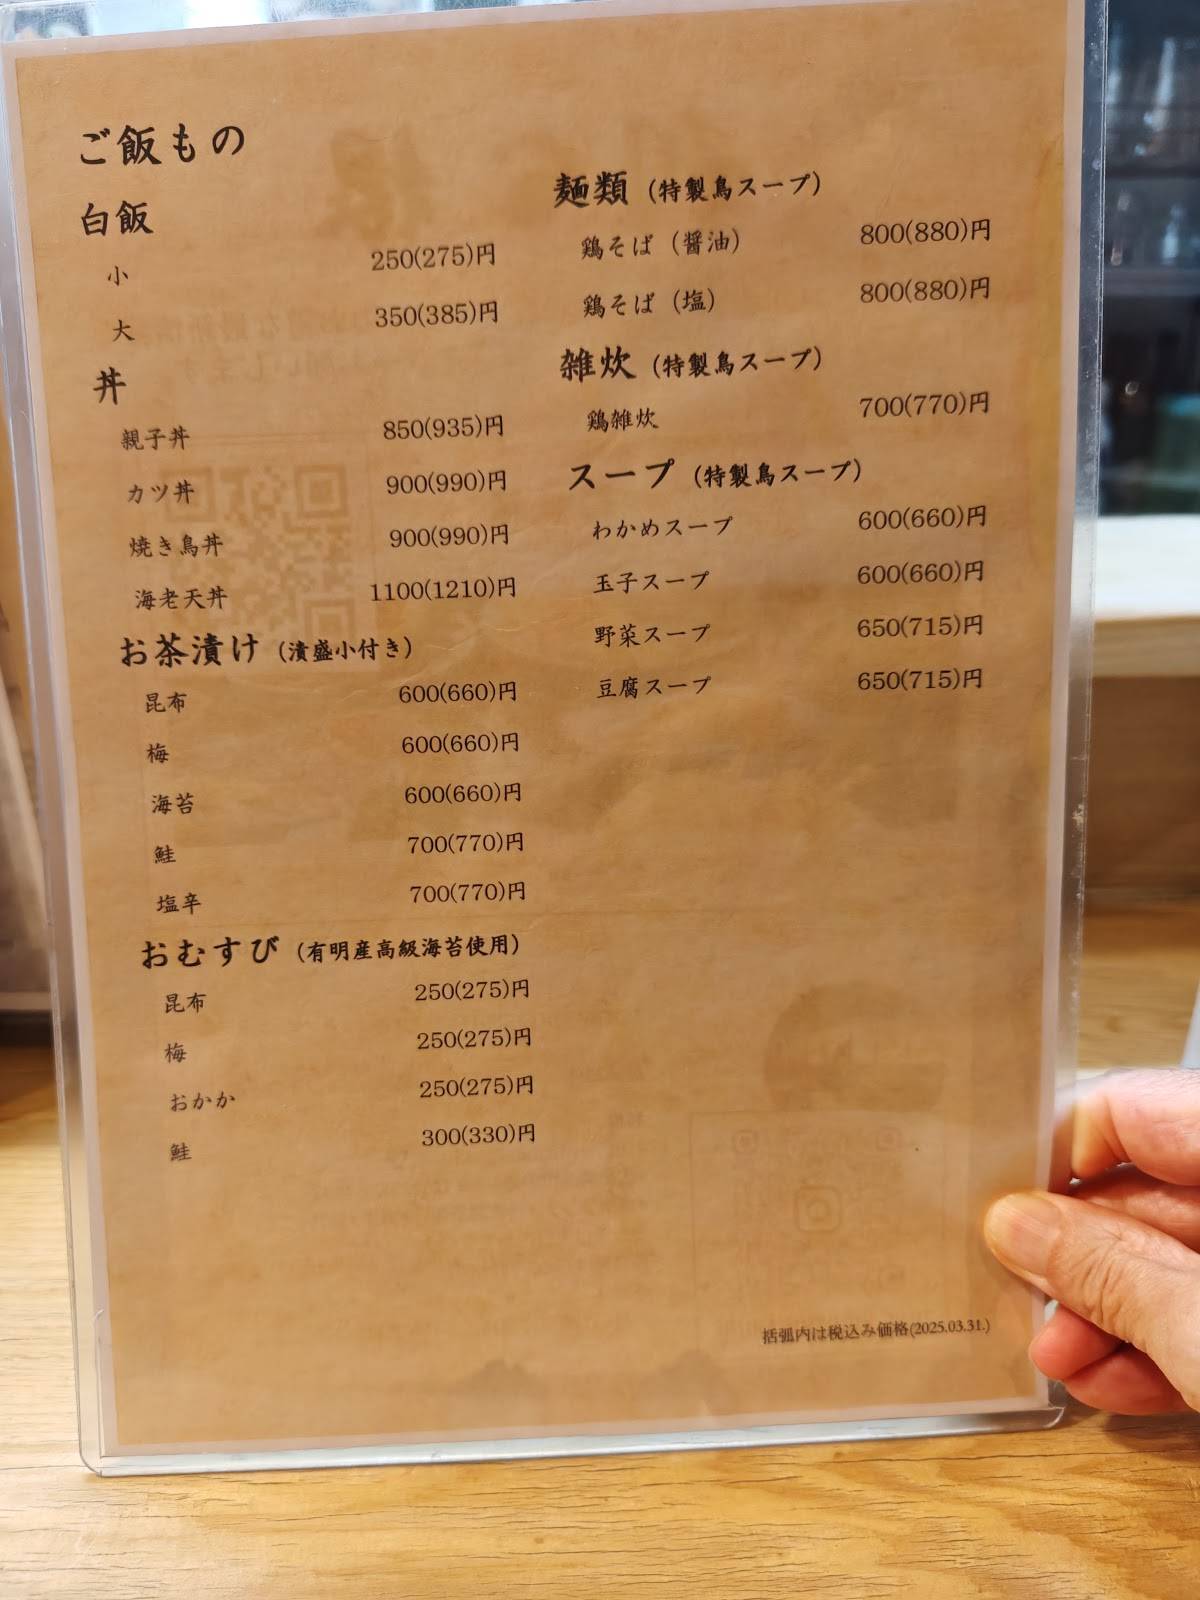 ご飯もの
白飯
小 250(275)円
大 350(385)円
丼
親子丼 850(935)円
カツ丼 900(990)円
焼き鳥丼 900(990)円
海老天丼 1100(1210)円
お茶漬け (漬盛小付き)
昆布 600(660)円
梅 600(660)円
海苔 600(660)円
鮭 700(770)円
塩辛 700(770)円
おむすび (有明産高級海苔使用)
昆布 250(275)円
梅 250(275)円
おかか 250(275)円
鮭 300(330)円
麺類 (特製鳥スープ)
鶏そば (醤油) 800(880)円
鶏そば (塩) 800(880)円
雑炊 (特製鳥スープ)
鶏雑炊 700(770)円
スープ (特製鳥スープ)
わかめスープ 600(660)円
玉子スープ 600(660)円
野菜スープ 650(715)円
豆腐スープ 650(715)円
括弧内は税込み価格(2025.03.31.)